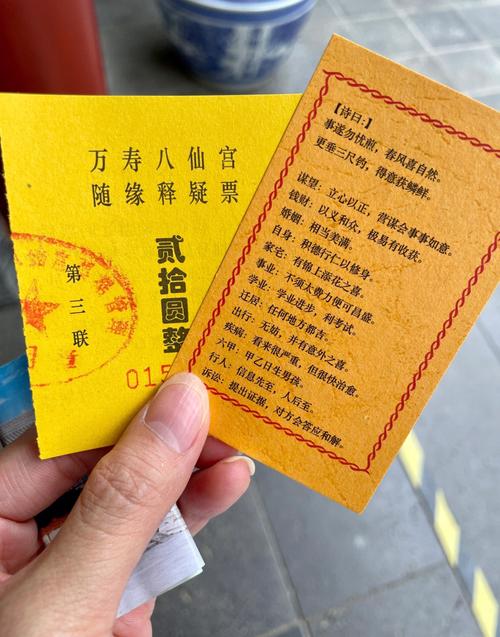 万寿八仙宫
随缘释疑票
贰拾圆整
第三联
015
【诗曰：】
事遂勿忧煎，春风喜自然。
更垂三尺钓，得意获鳞鲜。
谋望：立心以正，营谋会事事如意。
钱财：以义和众，极易有收获。
婚姻：相当美满。
自身：积德行仁以修身。
家宅：有锦上添花之喜。
事业：不须太费力便可昌盛。
学业：学业进步，利考试。
迁居：任何地方都吉。
出行：无妨，并有意外之喜。
疾病：看来很严重，但很快治愈。
六甲：甲乙日生男孩。
行人：信息先至，人后至。
诉讼：提出证据，对方会答应和解。